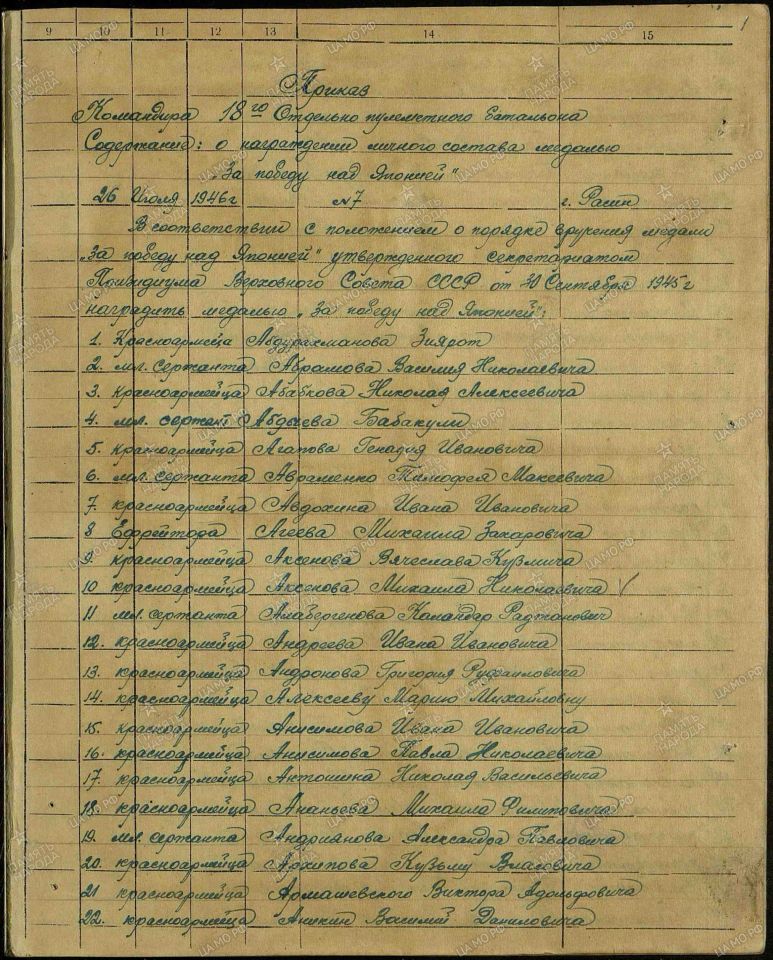 9 10 11 12 13 14 15
1
Приказ
Командира 18го Отдельно пулеметного Батальона
Содержание: о награждении личного состава медалью
"За победу над Японией"
26 Июля 1946г №7 г. Расин
В соответствии с положением о порядке вручения медали
"За победу над Японией" утвержденного секретариатом
Призидиума Верховного Совета СССР от 30 Сентября 1945г
наградить медалью "За победу над Японией":
1. Красноармейца Абдурахманова Зиярот
2. мл. сержанта Абрамова Василия Николаевича
3. красноармейца Абабкова Николая Алексеевича
4. мл. сержант Абдыева Бабакули
5. красноармейца Агапова Генадия Ивановича
6. мл. сержанта Авраменко Тимофея Макеевича
7. красноармейца Авдохина Ивана Ивановича
8 Ефрейтора Агеева Михаила Захаровича
9. красноармейца Аксенова Вячеслава Кузмича
10 красноармейца Аксенова Михаила Николаевича
11 мл. сержанта Алабергенова Командар
12. красноармейца Андреева Ивана Ивановича
13. красноармейца Андронова Григория
14. красноармейца Алексееву Марию Михайловну
15. красноармейца Анисимова Ивана Ивановича
16. красноармейца Анисимова Павла Николаевича
17. красноармейца Антошина Николая Васильевича
18 красноармейца Ананьева Михаила Филиповича
19. мл. сержанта Андрианова Александра Павловича
20. красноармейца Архипова Кузьму Власовича
21 красноармейца Армашевского Виктора Адольфовича
22. красноармейца Аникин Василий Даниловича